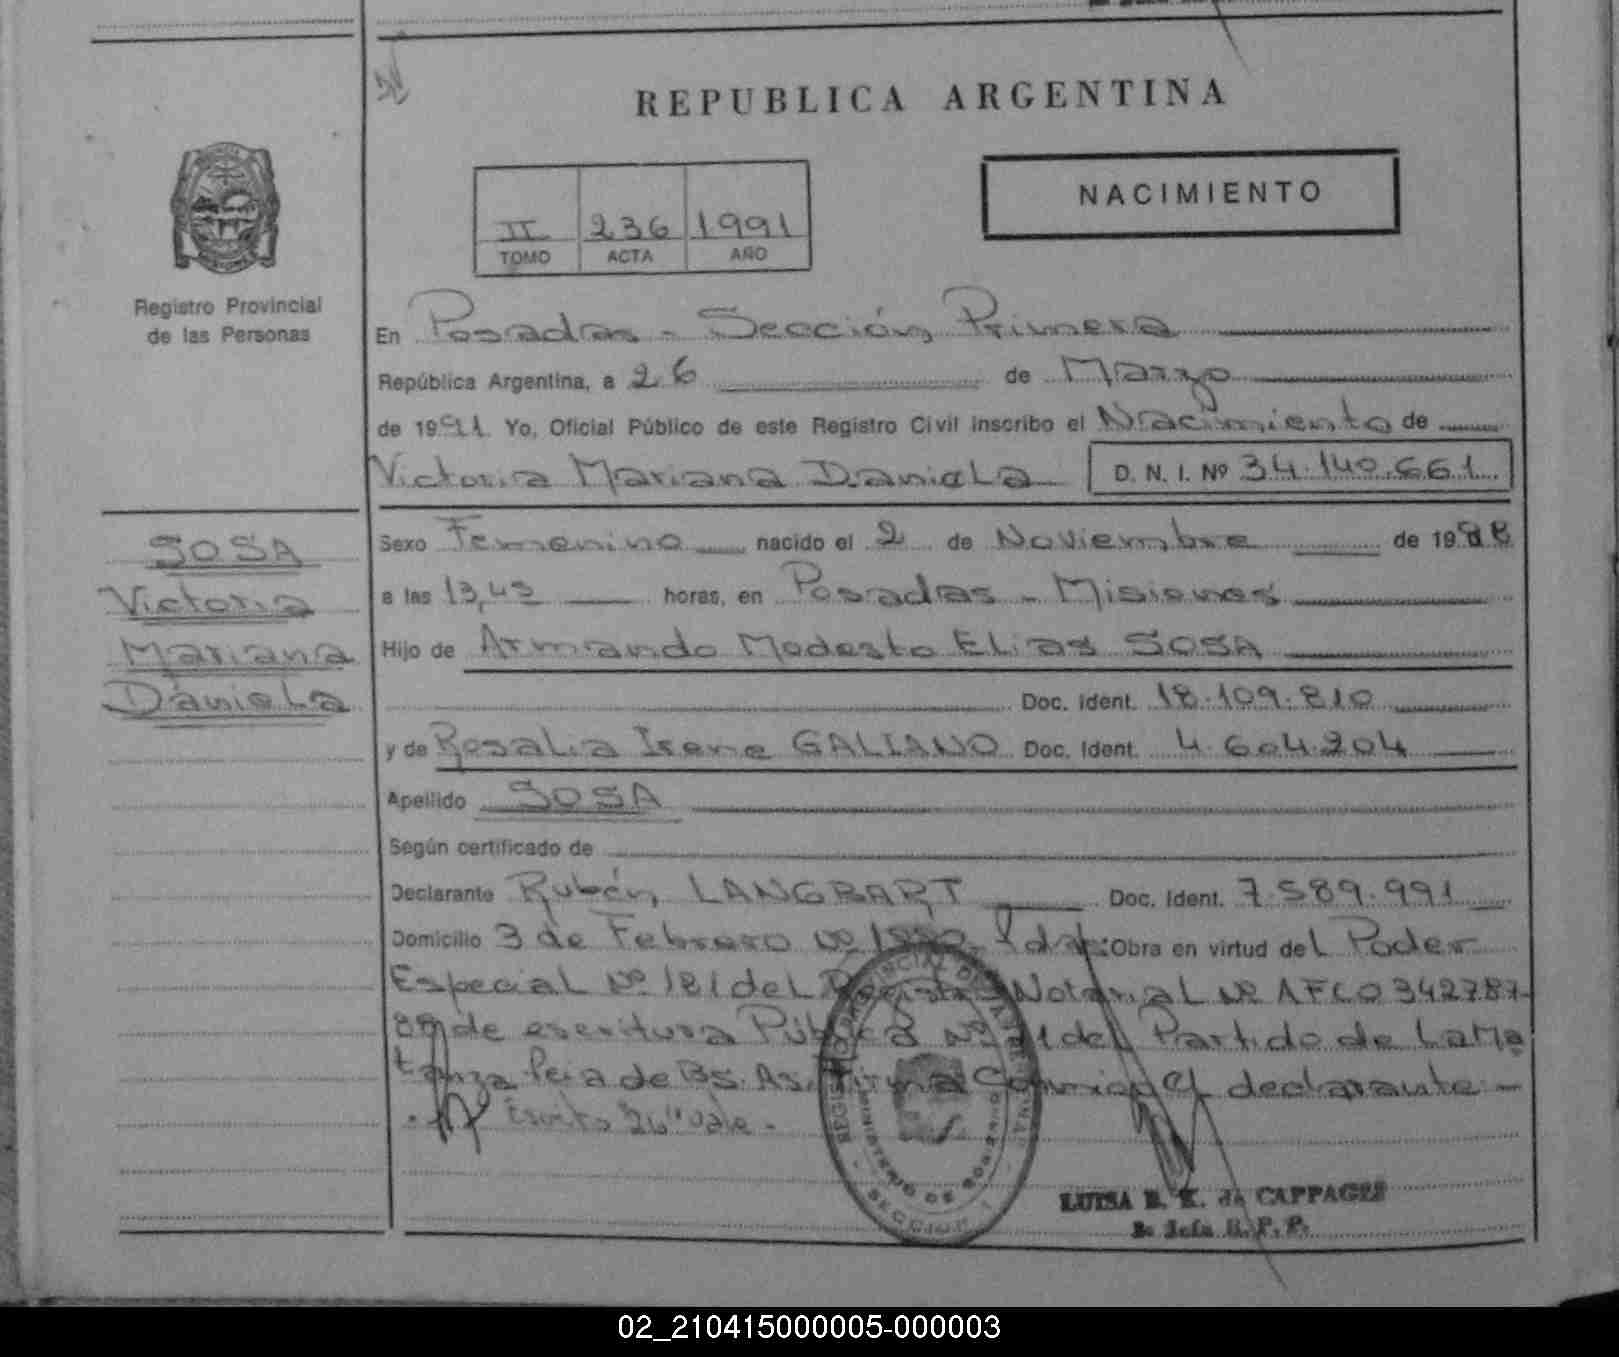 REPUBLICA ARGENTINA
NACIMIENTO
II 236 1991
TOMO ACTA AÑO
Registro Provincial
de las Personas
En Posadas - Sección Primera
República Argentina, a 26 de Marzo
de 1991. Yo, Oficial Público de este Registro Civil inscribo el Nacimiento de
Victoria Mariana Daniela D. N. I. Nº 34.140.661
SOSA
Victoria
Mariana
Daniela
Sexo Femenino nacido el 2 de Noviembre de 1988
a las 13,45 horas, en Posadas - Misiones
Hijo de Armando Modesto Elias SOSA
Doc. Ident. 18.109.810
y de Rosalia Irene GALIANO Doc. Ident. 4.604.204
Apellido SOSA
Según certificado de
Declarante Rubén LANGBART Doc. Ident. 7.589.991
Domicilio 3 de Febrero Nº Obra en virtud del Poder
Especial Nº 181 del Registro Notarial Nº 1FCO342787-
89 de escritura Pública Nº del Partido de La Ma
tanza Pcia de Bs. As. Firma Conmigo el declarante -
vale -
REGISTRO PROVINCIAL DE LAS PERSONAS
MINISTERIO DE GOBIERNO
- SECCION 1 -
LUISA E. K. de CAPPAGES
2º Jefa R. P. P.
02_210415000005-000003